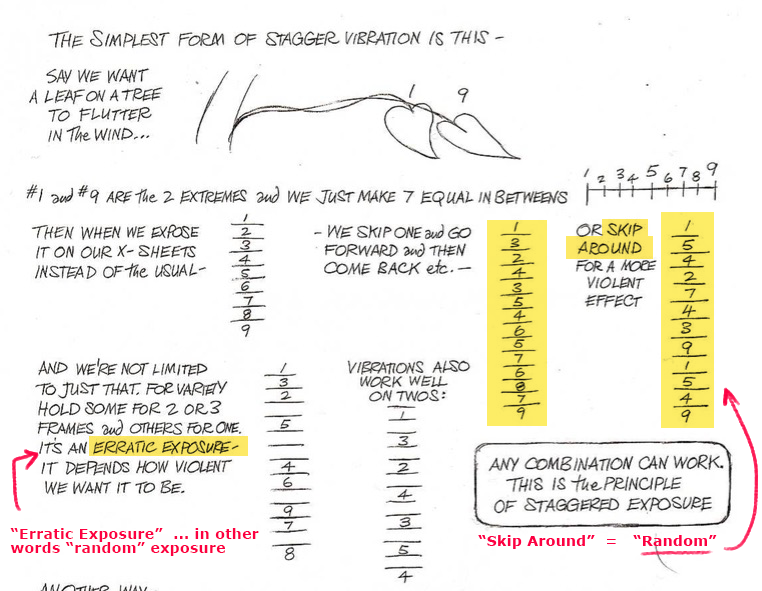 THE SIMPLEST FORM OF STAGGER VIBRATION IS THIS –
SAY WE WANT
A LEAF ON A TREE
TO FLUTTER
IN The WIND...
1 9
#1 and #9 ARE the 2 EXTREMES and WE JUST MAKE 7 EQUAL INBETWEENS
1 2 3 4 5 6 7 8 9
THEN WHEN WE EXPOSE
IT ON OUR X-SHEETS
INSTEAD OF the USUAL–
1
2
3
4
5
6
7
8
9
– WE SKIP ONE and GO
FORWARD and THEN
COME BACK etc. –
1
3
2
4
3
5
4
6
5
7
6
8
7
9
OR SKIP
AROUND
FOR A MORE
VIOLENT
EFFECT
1
5
4
2
7
4
3
9
1
5
4
9
AND WE'RE NOT LIMITED
TO JUST THAT. FOR VARIETY
HOLD SOME FOR 2 OR 3
FRAMES and OTHERS FOR ONE.
IT'S AN ERRATIC EXPOSURE–
IT DEPENDS HOW VIOLENT
WE WANT IT TO BE.
1
3
2
5
4
6
9
7
8
VIBRATIONS ALSO
WORK WELL
ON TWOS:
1
3
2
4
3
5
4
ANY COMBINATION CAN WORK.
THIS IS the PRINCIPLE
OF STAGGERED EXPOSURE
“Erratic Exposure” ... in other
words “random” exposure
“Skip Around” = “Random”
ANOTHER WAY –